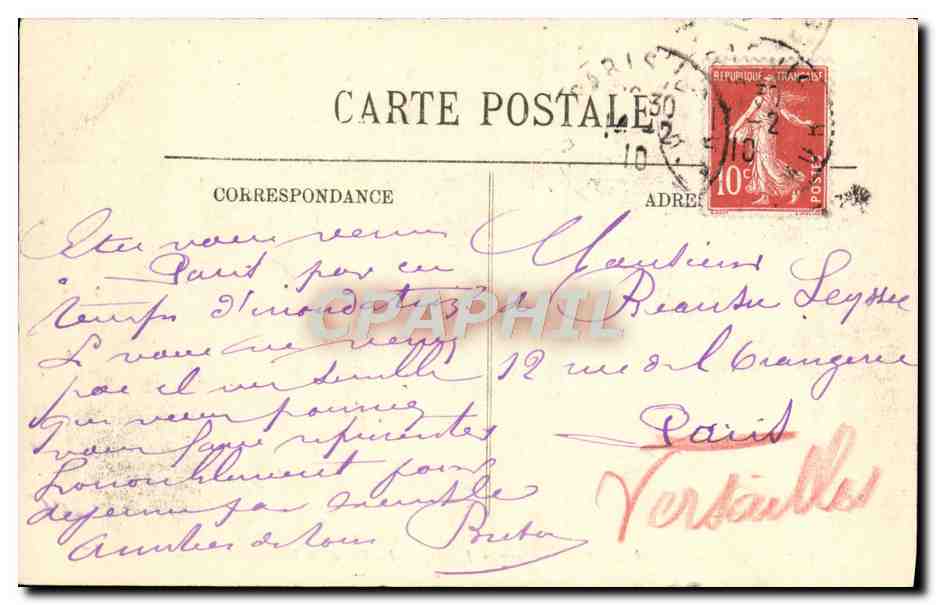 CARTE POSTALE
PARIS
30
-2
10
REPUBLIQUE FRANÇAISE
30
-2
10
10c
POSTES
CORRESPONDANCE
ADRES
Etes vous venu
à Paris par ce
temps d'inondation
Si vous ne venez
pas il me semble
que vous pourriez
vous faire représenter
honorablement pour
déjeuner par
Amitiés de tous
Monsieur
12 rue de l'Orangerie
Paris
Versailles
CPAPHIL